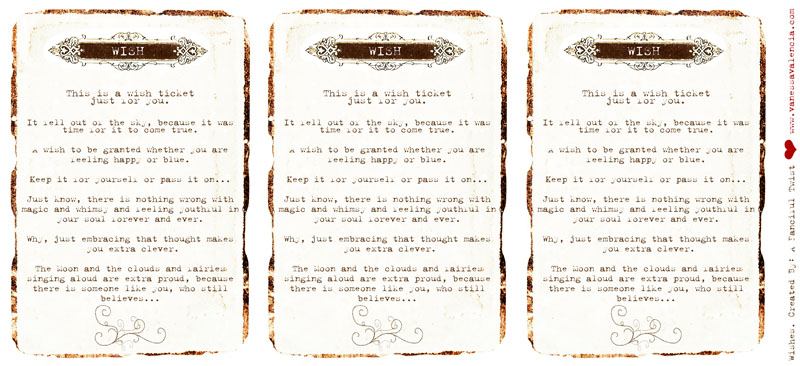 WISH
This is a wish ticket
just for you.
It fell out of the sky, because it was
time for it to come true.
A wish to be granted whether you are
feeling happy or blue.
Keep it for yourself or pass it on...
Just know, there is nothing wrong with
magic and whimsy and feeling youthful in
your soul forever and ever.
Why, just embracing that thought makes
you extra clever.
The Moon and the clouds and fairies
singing aloud are extra proud, because
there is someone like you, who still
believes...
WISH
This is a wish ticket
just for you.
It fell out of the sky, because it was
time for it to come true.
A wish to be granted whether you are
feeling happy or blue.
Keep it for yourself or pass it on...
Just know, there is nothing wrong with
magic and whimsy and feeling youthful in
your soul forever and ever.
Why, just embracing that thought makes
you extra clever.
The Moon and the clouds and fairies
singing aloud are extra proud, because
there is someone like you, who still
believes...
WISH
This is a wish ticket
just for you.
It fell out of the sky, because it was
time for it to come true.
A wish to be granted whether you are
feeling happy or blue.
Keep it for yourself or pass it on...
Just know, there is nothing wrong with
magic and whimsy and feeling youthful in
your soul forever and ever.
Why, just embracing that thought makes
you extra clever.
The Moon and the clouds and fairies
singing aloud are extra proud, because
there is someone like you, who still
believes...
Wishes. Created By: A Fanciful Twist ♥ www.vanessavalencia.com